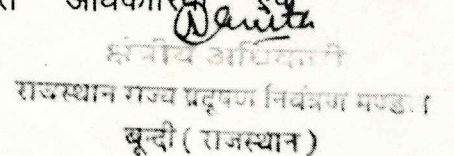 अधिकारी
क्षेत्रीय अधिकारी
राजस्थान राज्य प्रदूषण नियंत्रण मण्डल
बून्दी ( राजस्थान )